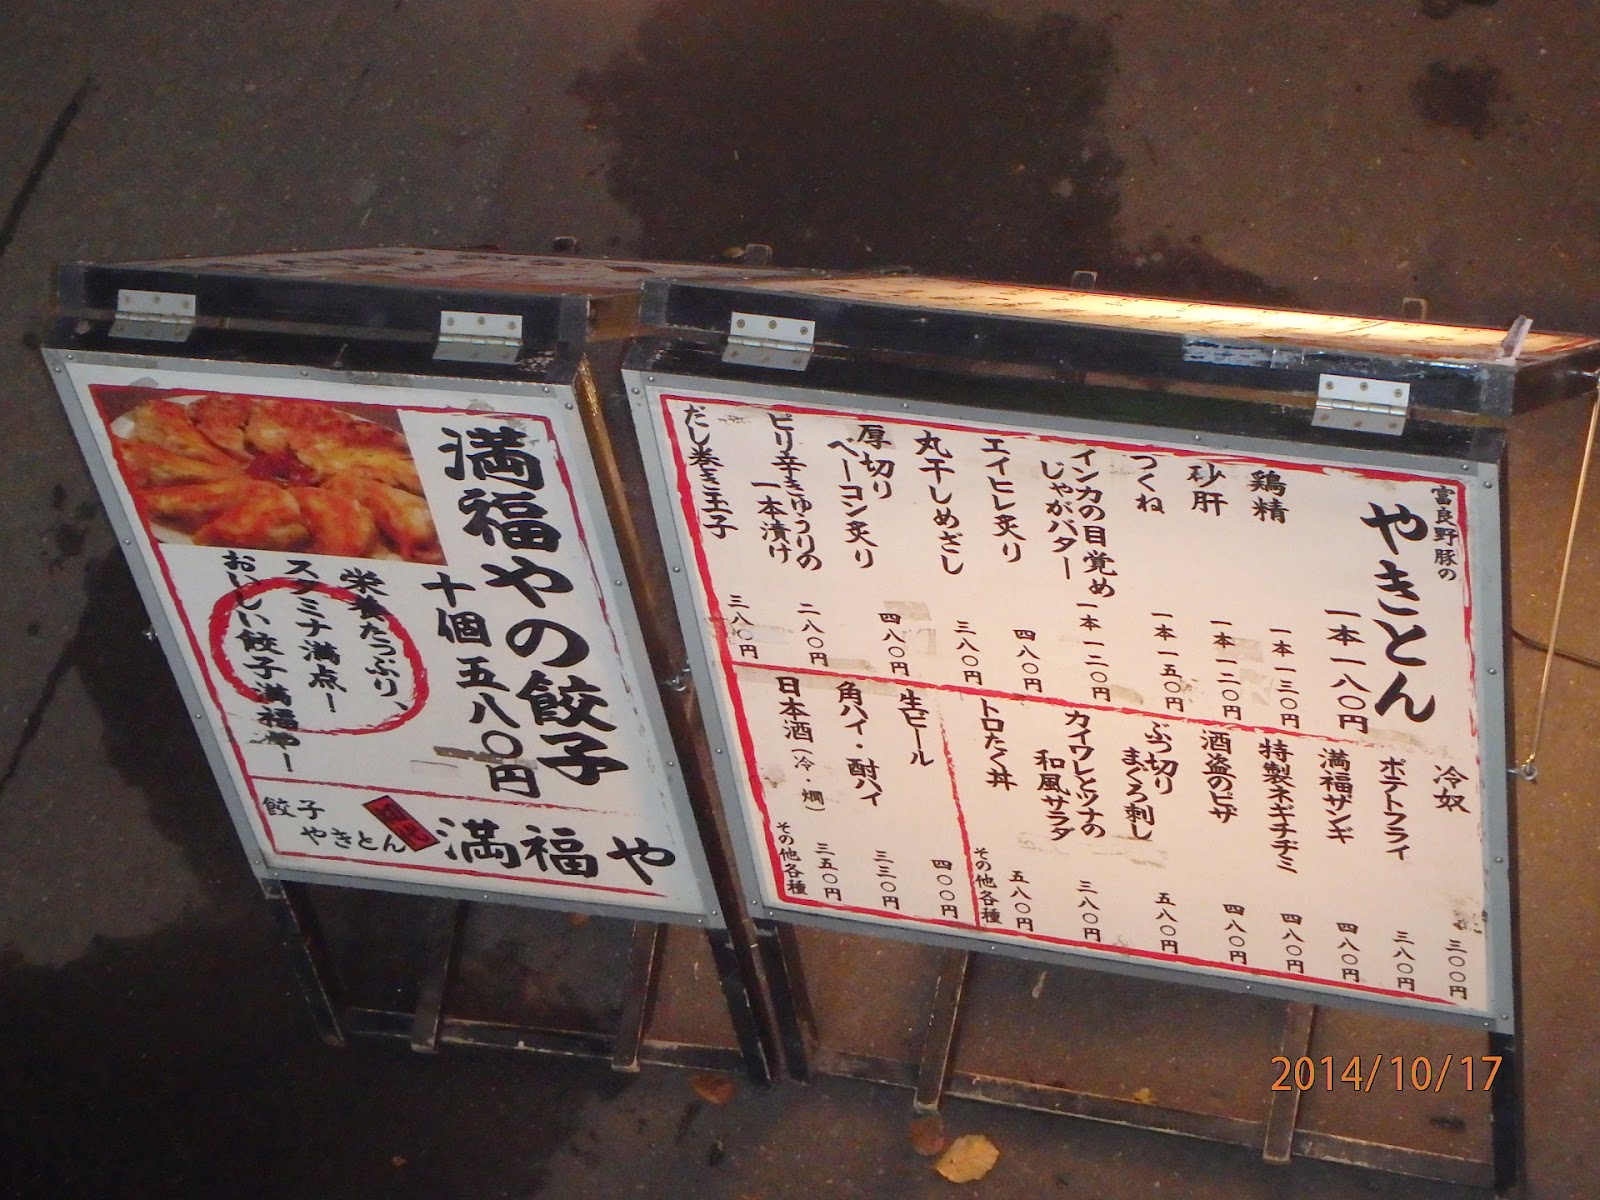 満福やの餃子
十個五八〇円
栄養たっぷり、
スタミナ満点！
おいしい餃子満福や！
餃子
やきとん
満福や
富良野豚の
やきとん
一本一八〇円
鶏精
一本一三〇円
砂肝
一本一二〇円
つくね
一本一五〇円
インカの目覚め
じゃがバター
一本一二〇円
エイヒレ炙り
四八〇円
丸干しめざし
三八〇円
厚切り
ベーコン炙り
四八〇円
ピリ辛きゅうりの
一本漬け
二八〇円
だし巻き玉子
三八〇円
冷奴
三〇〇円
ポテトフライ
三八〇円
満福ザンギ
四八〇円
特製ネギチヂミ
四八〇円
酒盗のピザ
四八〇円
ぶつ切り
まぐろ刺し
五八〇円
カイワレとツナの
和風サラダ
三八〇円
トロたく丼
五八〇円
その他各種
生ビール
四〇〇円
角ハイ・酎ハイ
三三〇円
日本酒（冷・燗）
三五〇円
その他各種
2014/10/17